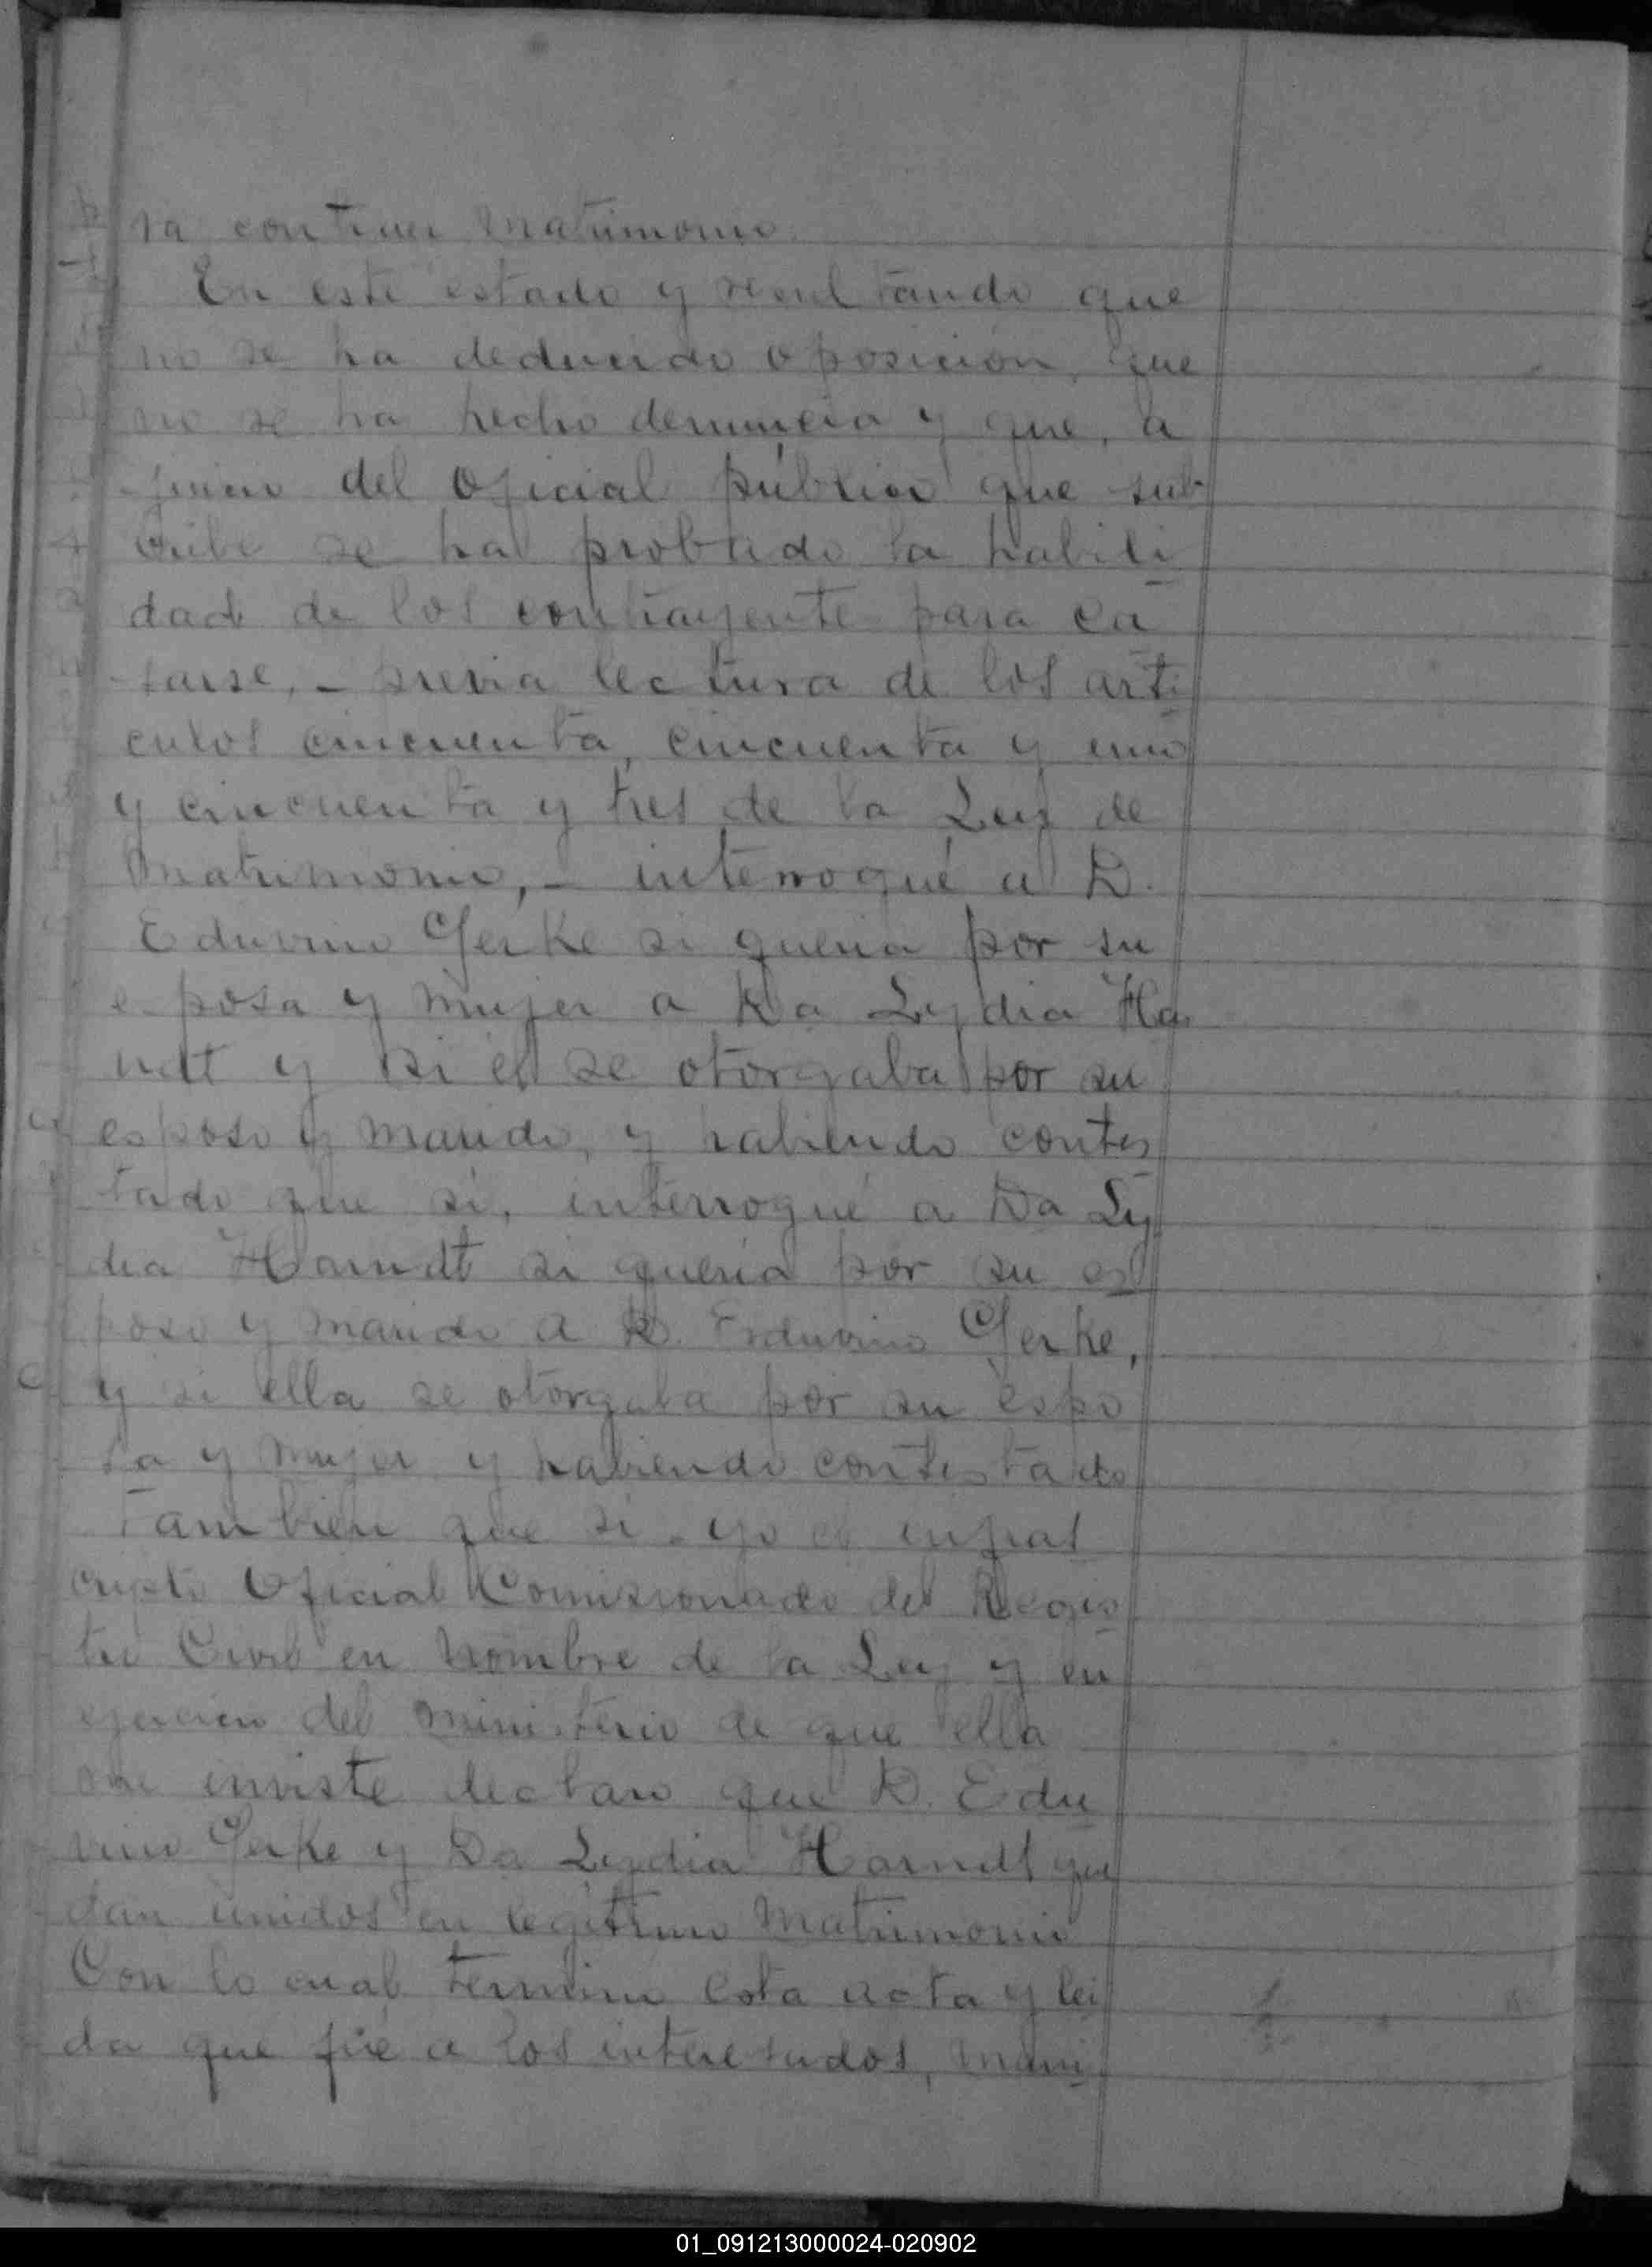 ra contraer matrimonio.
En este estado y resultando que
no se ha deducido oposición, que
no se ha hecho denuncia y que, a
juicio del Oficial público que sub
cribe se ha probado la habili
dad de los contrayente para ca
sarse, - previa lectura de los arti
culos cincuenta, cincuenta y uno
y cincuenta y tres de la Ley de
Matrimonio, - interrogué a D.
Eduvino Gerke si queria por su
esposa y mujer a Da Lydia Ha
rndt y si el se otorgaba por su
esposo y marido, y habiendo contes
tado que si, interrogué a Da Ly
dia Harndt si queria por su es
poso y marido a D. Eduvino Gerke,
y si ella se otorgaba por su espo
sa y mujer y habiendo contestado
tambien que si - yo el infras
cripto Oficial Comisionado del Regis
tro Civil en nombre de la Ley y en
ejercicio del ministerio de que ella
me inviste declaro que D. Edu
vino Gerke y Da Lydia Harndt que
dan unidos en legitimo matrimonio
Con lo cual termina esta acta y lei
da que fué a los interesados, mani
01_091213000024-020902